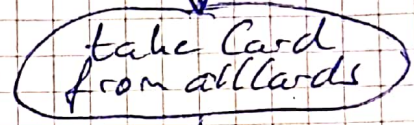 take Card
from allCards